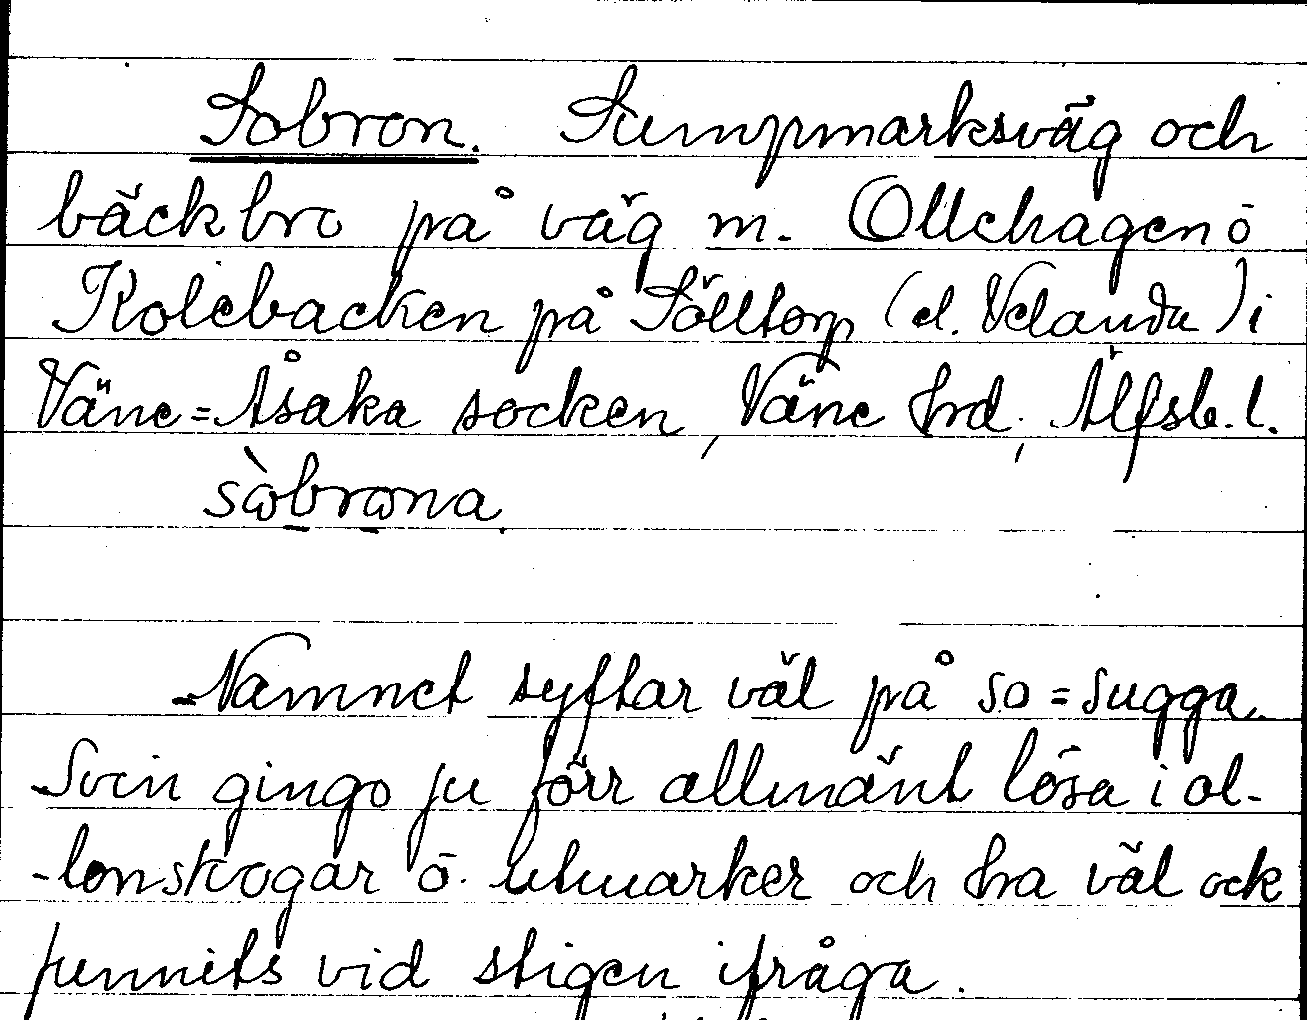 Sobron. Sumpmarksväg och
bäckbro på väg m. Ollehagen ō
Kolebacken på Sölltorp (el. Velanda) i
Väne=Åsaka socken, Väne hrd, Älfsb. l.
sòbrona.
Namnet syftar väl på so = sugga.
Svin gingo ju förr allmänt lösa i ol-
-lonskogar ō. utmarker och ha väl ock
funnits vid stigen ifråga.